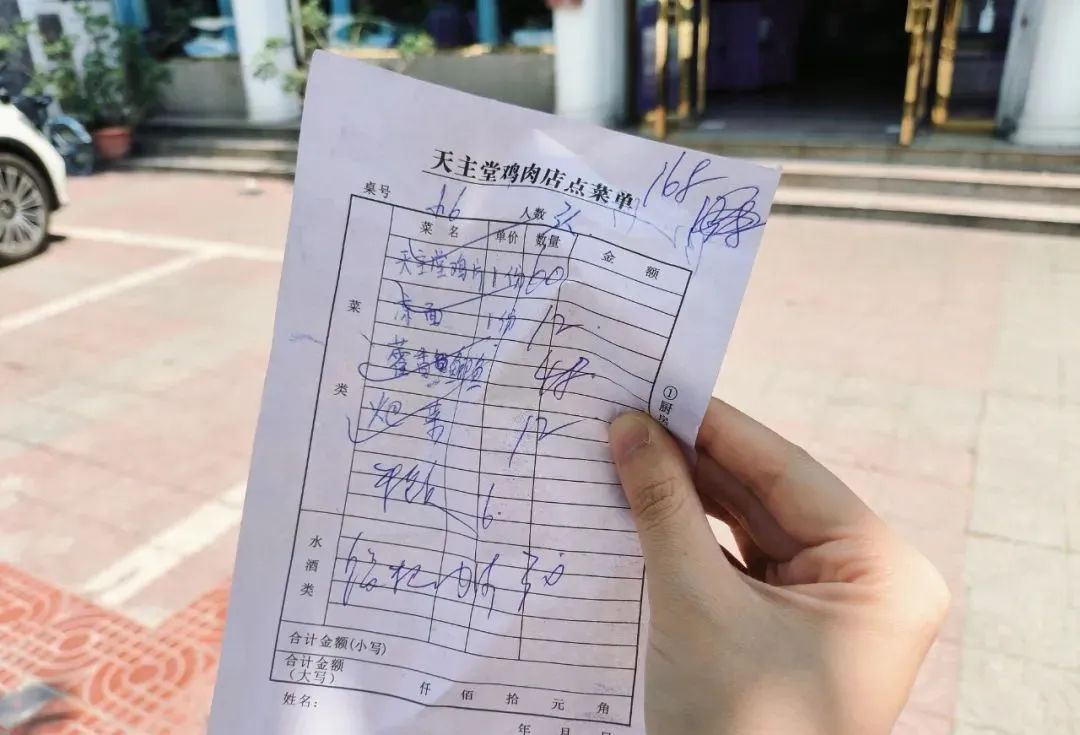 天主堂鸡肉店点菜单
168
桌号 66 人数 3
菜名 单价 数量 金额
天主堂鸡片 1份 60
凉面 1份 12.
48.
泡菜 12
6.
30
菜类
水酒类
合计金额(小写)
合计金额(大写) 仟 佰 拾 元 角
姓名:
年 月
①厨